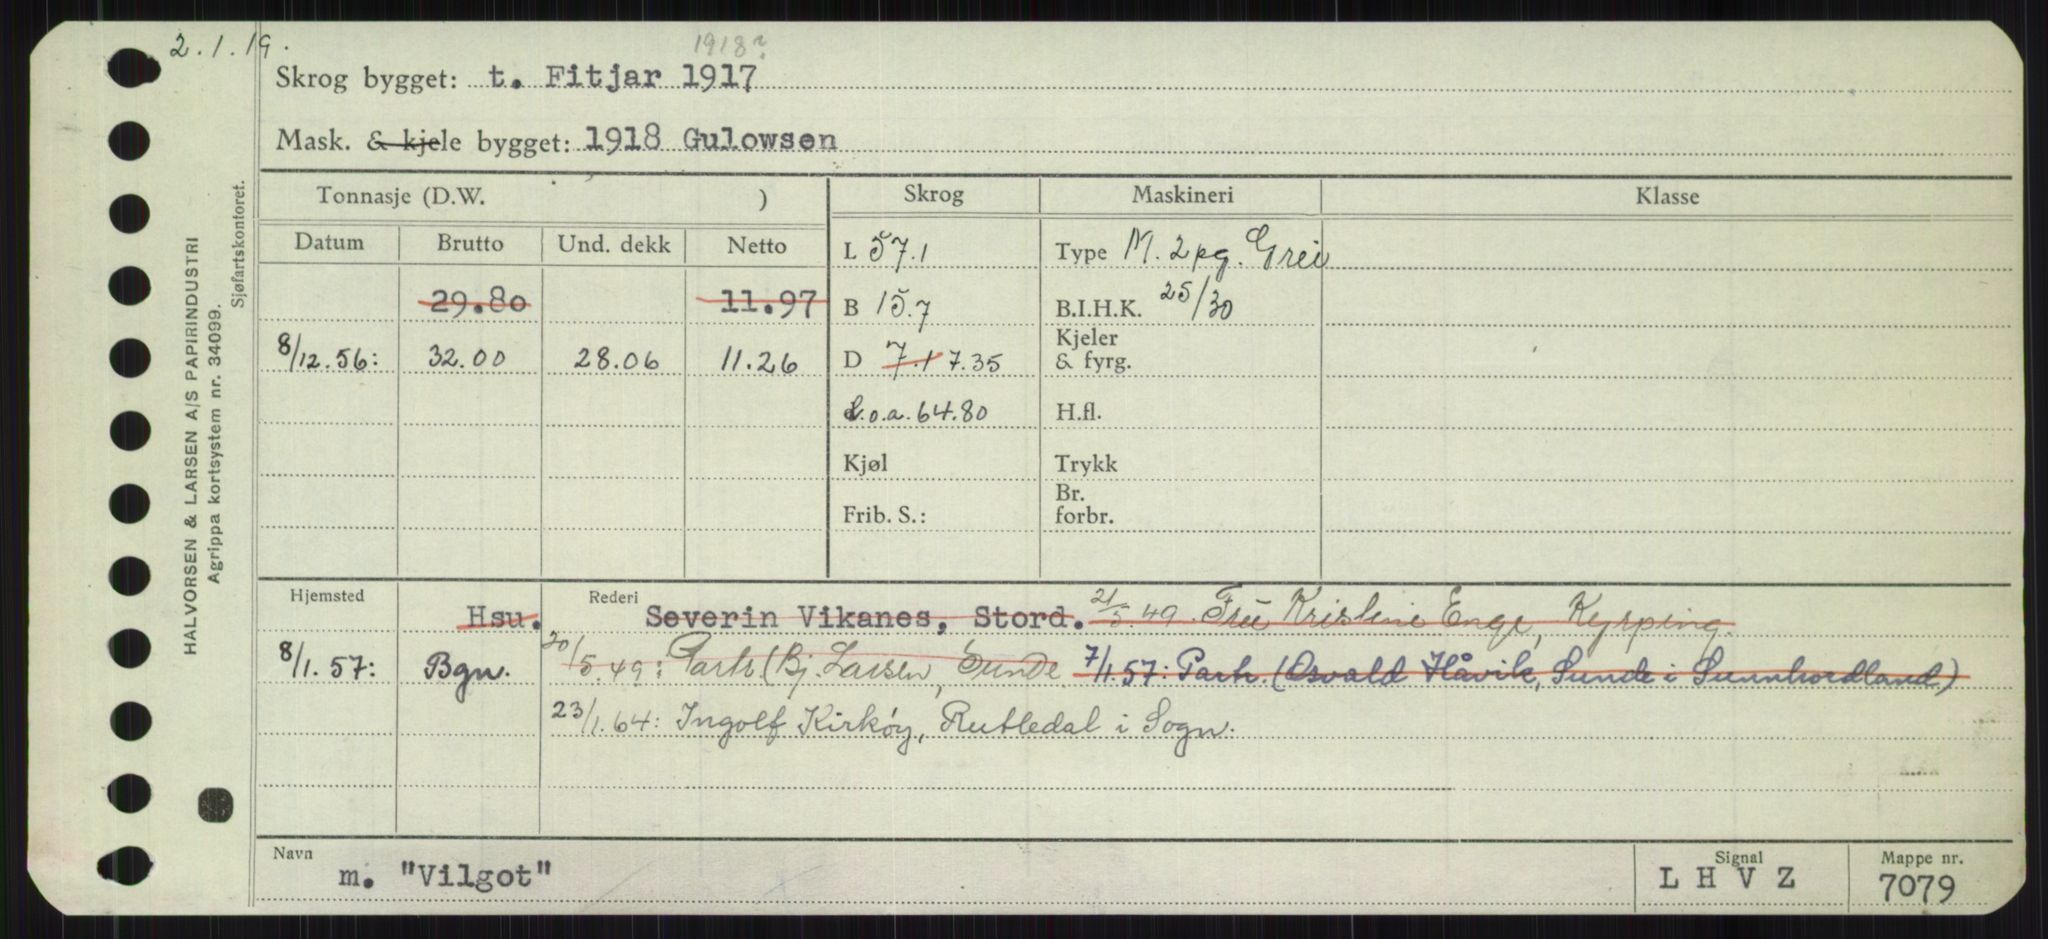 2.1.19.
1918?
Skrog bygget: t. Fitjar 1917
Mask. & kjele bygget: 1918 Gulowsen
Tonnasje (D.W. ) Skrog Maskineri Klasse
Datum Brutto Und. dekk Netto L 57.1 Type M. 2 pg. Grei
29.80 11.97 B 15.7 B.I.H.K. 25/30
8/12.56: 32.00 28.06 11.26 D 7.1 7.35 Kjeler & fyrg.
L.o.a. 64.80 H.fl.
Kjøl Trykk
Frib. S.: Br. forbr.
Hjemsted Hsu. Rederi Severin Vikanes, Stord. 21/5.49 Fru Kristine Enge, Kyrping.
8/1.57: Bgn. 20/5.49: Partr. (Bj. Larsen, Sunde 7/1.57: Partr. (Osvald Håvik, Sunde i Sunnhordland)
23/1.64: Ingolf Kirkøy, Rutledal i Sogn.
Navn m. "Vilgot" Signal LHVZ Mappe nr. 7079
HALVORSEN & LARSEN A/S PAPIRINDUSTRI
Agrippa kortsystem nr. 34099.
Sjøfartskontoret.